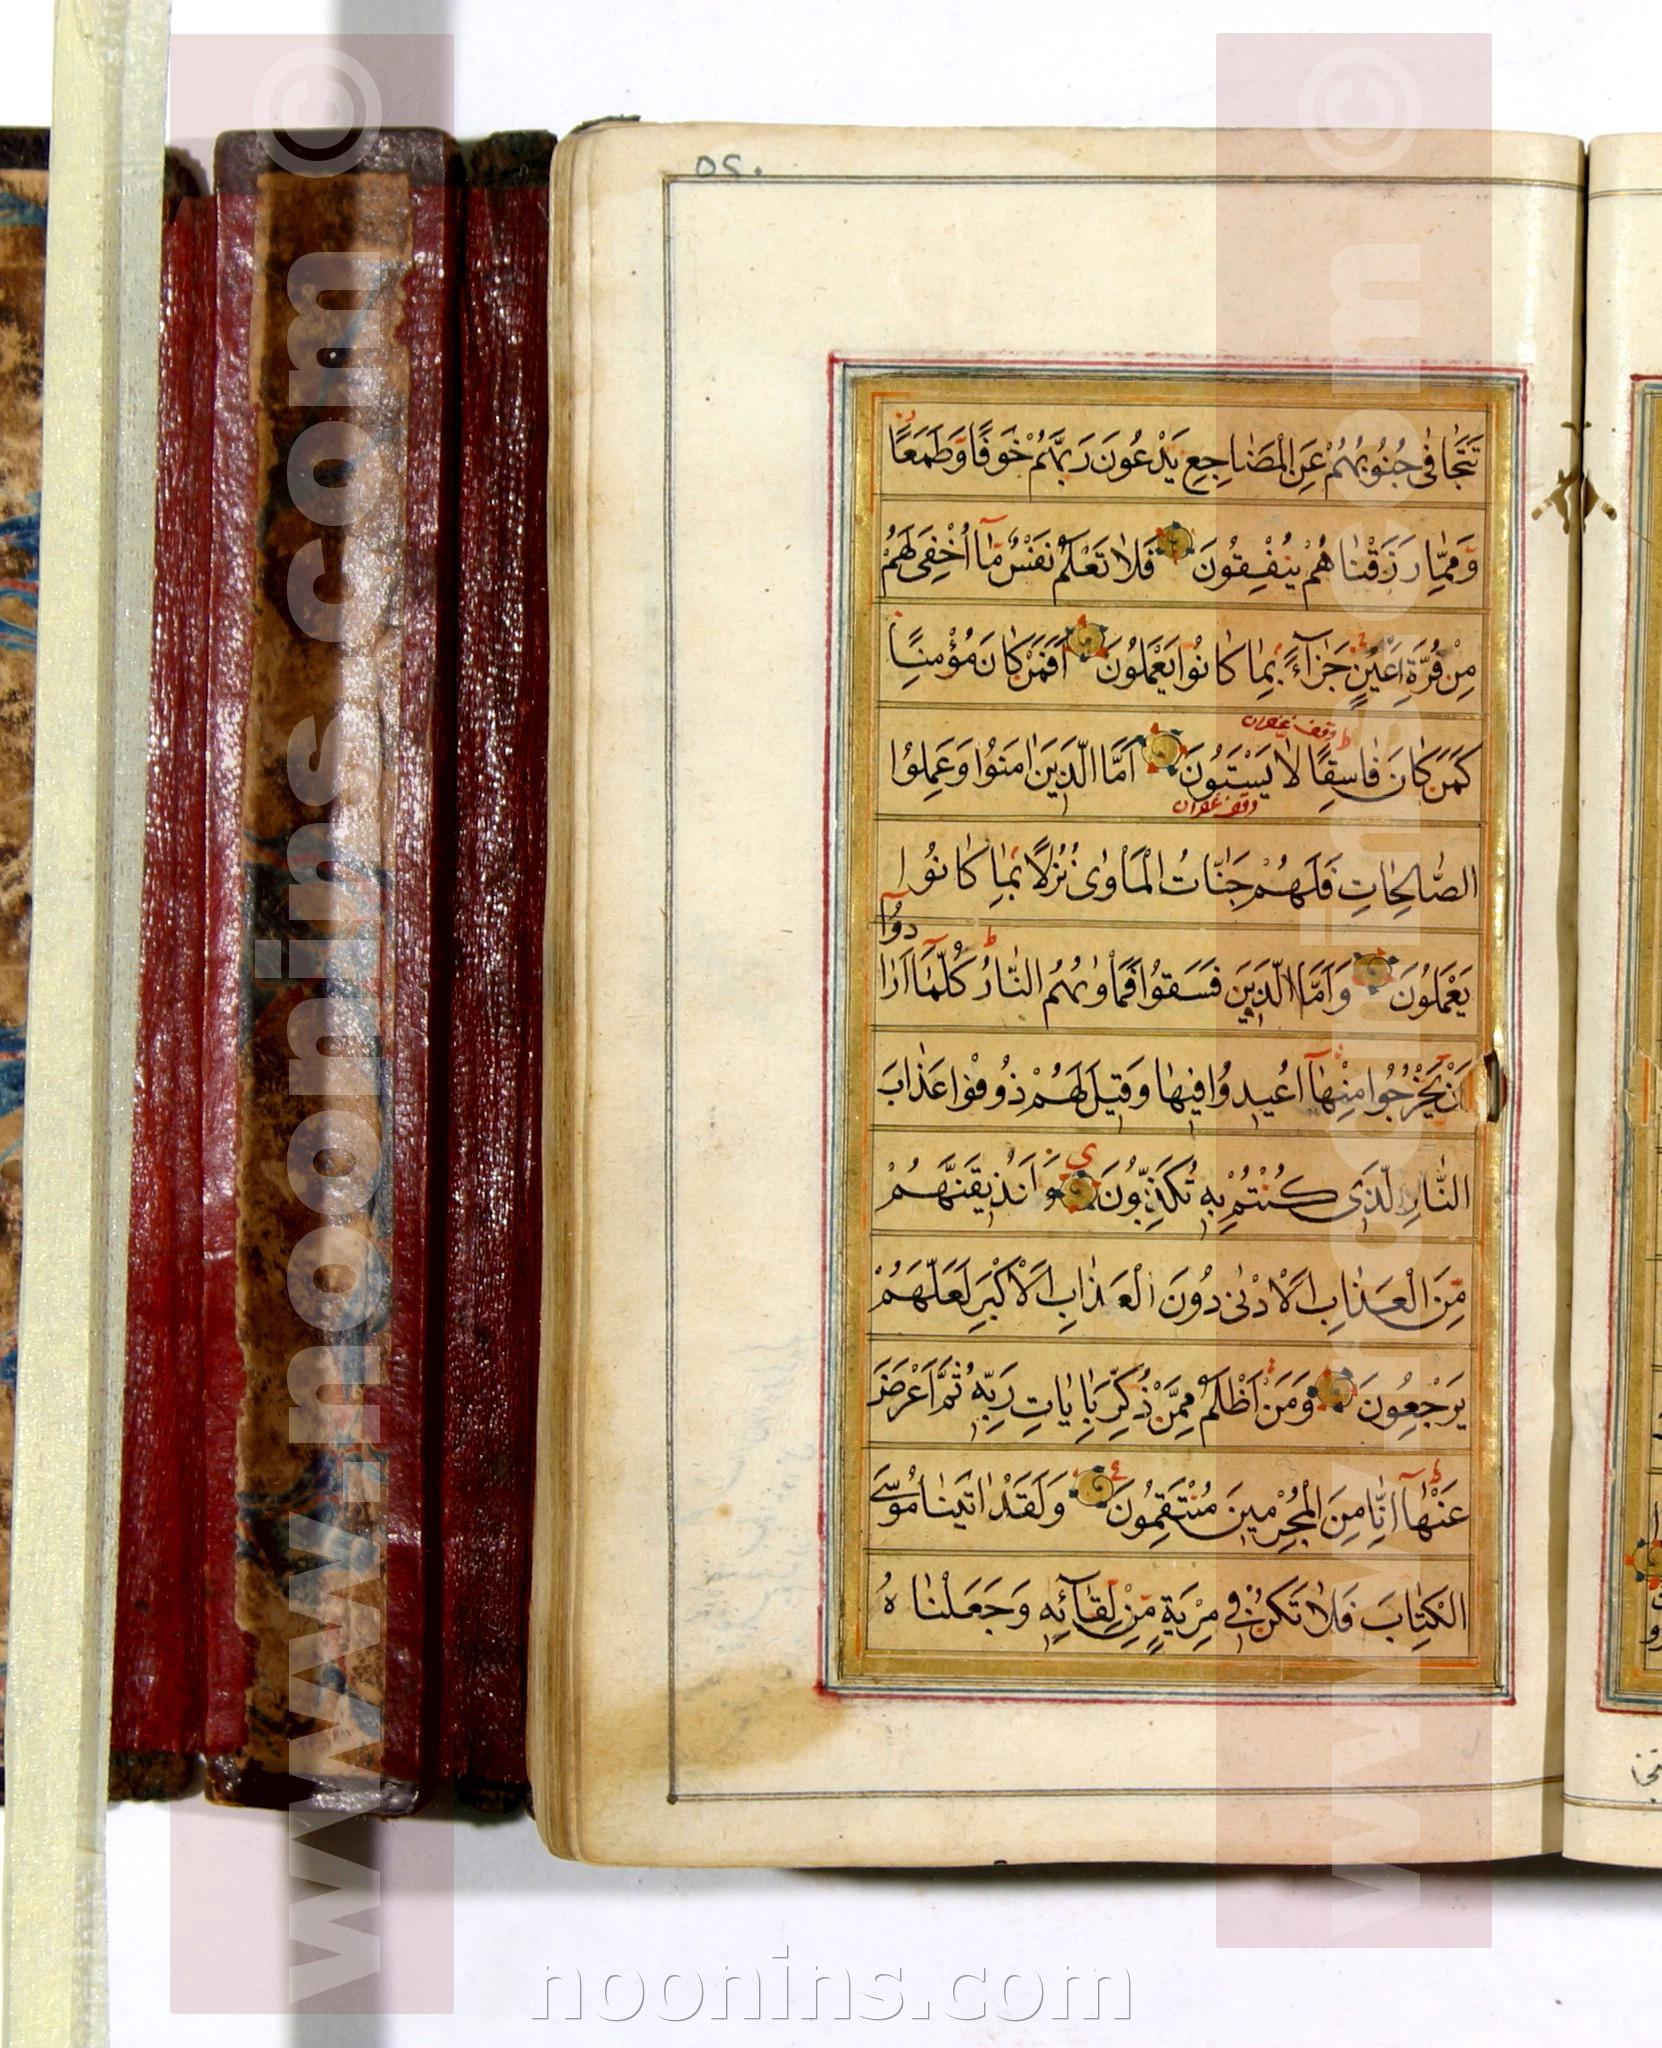 ٥٢٠
تَتَجَافٰى جُنُوبُهُمْ عَنِ الْمَضَاجِعِ يَدْعُونَ رَبَّهُمْ خَوْفًا وَطَمَعًا
وَمِمَّا رَزَقْنَاهُمْ يُنْفِقُونَ فَلَا تَعْلَمُ نَفْسٌ مَا اُخْفِىَ لَهُمْ
مِنْ قُرَّةِ اَعْيُنٍ جَزَآءً بِمَا كَانُوا يَعْمَلُونَ اَفَمَنْ كَانَ مُؤْمِنًا
وقف غفران
كَمَنْ كَانَ فَاسِقًا لَا يَسْتَوُونَ اَمَّا الَّذِينَ اٰمَنُوا وَعَمِلُوا
وقف غفران
الصَّالِحَاتِ فَلَهُمْ جَنَّاتُ الْمَاْوٰى نُزُلًا بِمَا كَانُوا
يَعْمَلُونَ وَاَمَّا الَّذِينَ فَسَقُوا فَمَاْوٰيهُمُ النَّارُ كُلَّمَا اَرَادُوٓا
اَنْ يَخْرُجُوا مِنْهَآ اُعِيدُوا فِيهَا وَقِيلَ لَهُمْ ذُوقُوا عَذَابَ
النَّارِ الَّذِى كُنْتُمْ بِهِ تُكَذِّبُونَ وَلَنُذِيقَنَّهُمْ
مِنَ الْعَذَابِ الْاَدْنٰى دُونَ الْعَذَابِ الْاَكْبَرِ لَعَلَّهُمْ
يَرْجِعُونَ وَمَنْ اَظْلَمُ مِمَّنْ ذُكِّرَ بِاٰيَاتِ رَبِّهِ ثُمَّ اَعْرَضَ
عَنْهَآ اِنَّا مِنَ الْمُجْرِمِينَ مُنْتَقِمُونَ وَلَقَدْ اٰتَيْنَا مُوسَى
الْكِتَابَ فَلَا تَكُنْ فِى مِرْيَةٍ مِنْ لِقَآئِهِ وَجَعَلْنَاهُ
www.noonins.com ©
www.noonins.com ©
noonins.com